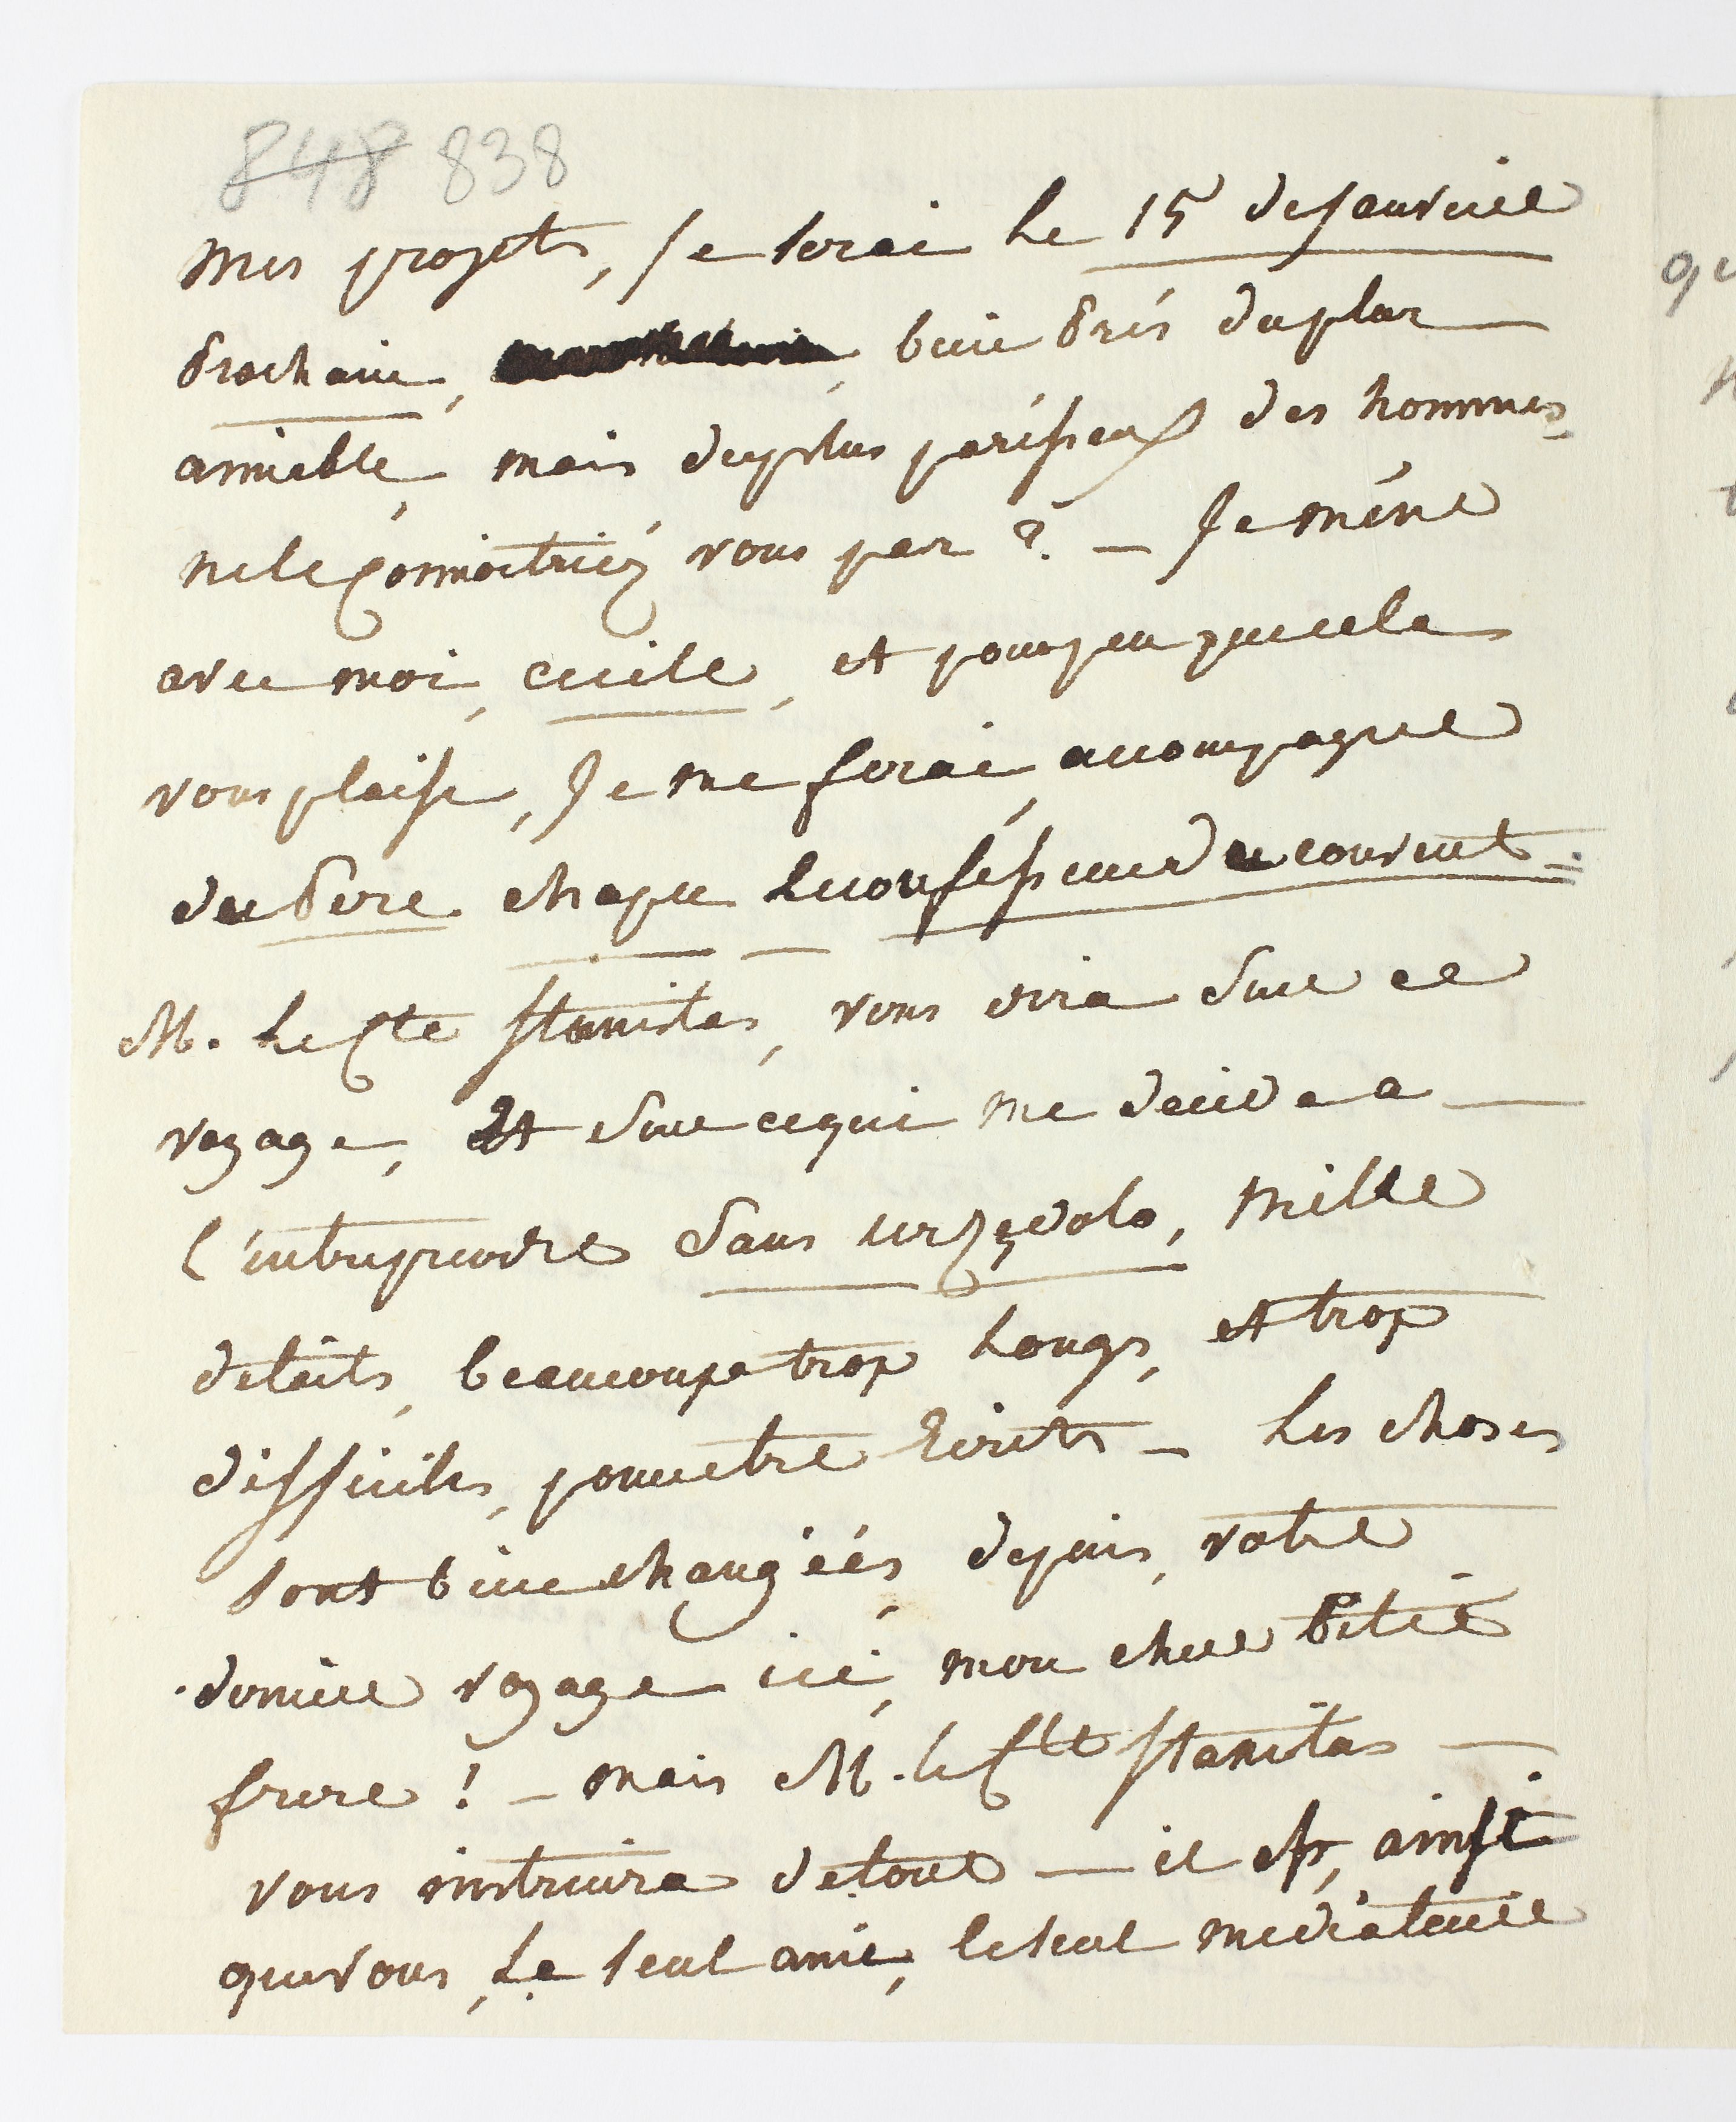 848 838
mes projets, Je serai le 15 de Janvier
prochain, bien près du plus
aimable, mais du plus paresseux des hommes
ne le connoitriez vous pas ? — Je méne
avec moi, cecile, et pour peu que cela
vous plaise, Je me ferai, accompagner
du Pere chapu le confesseur du couvent.
M. le Cte Stanislas, vous dira sur ce
voyage, et sur ce qui me decide a
l'entreprendre sans, mille
details, beaucoup trop longs, et trop
difficiles, pour etre Ecrits — les choses
sont bien changéés, depuis, votre
dernier voyage ici, mon cher Petit
frere ! — mais M. le Cte Stanislas
vous instruira de tout — il est, ainsi
que vous, le seul ami, le seul mediateur